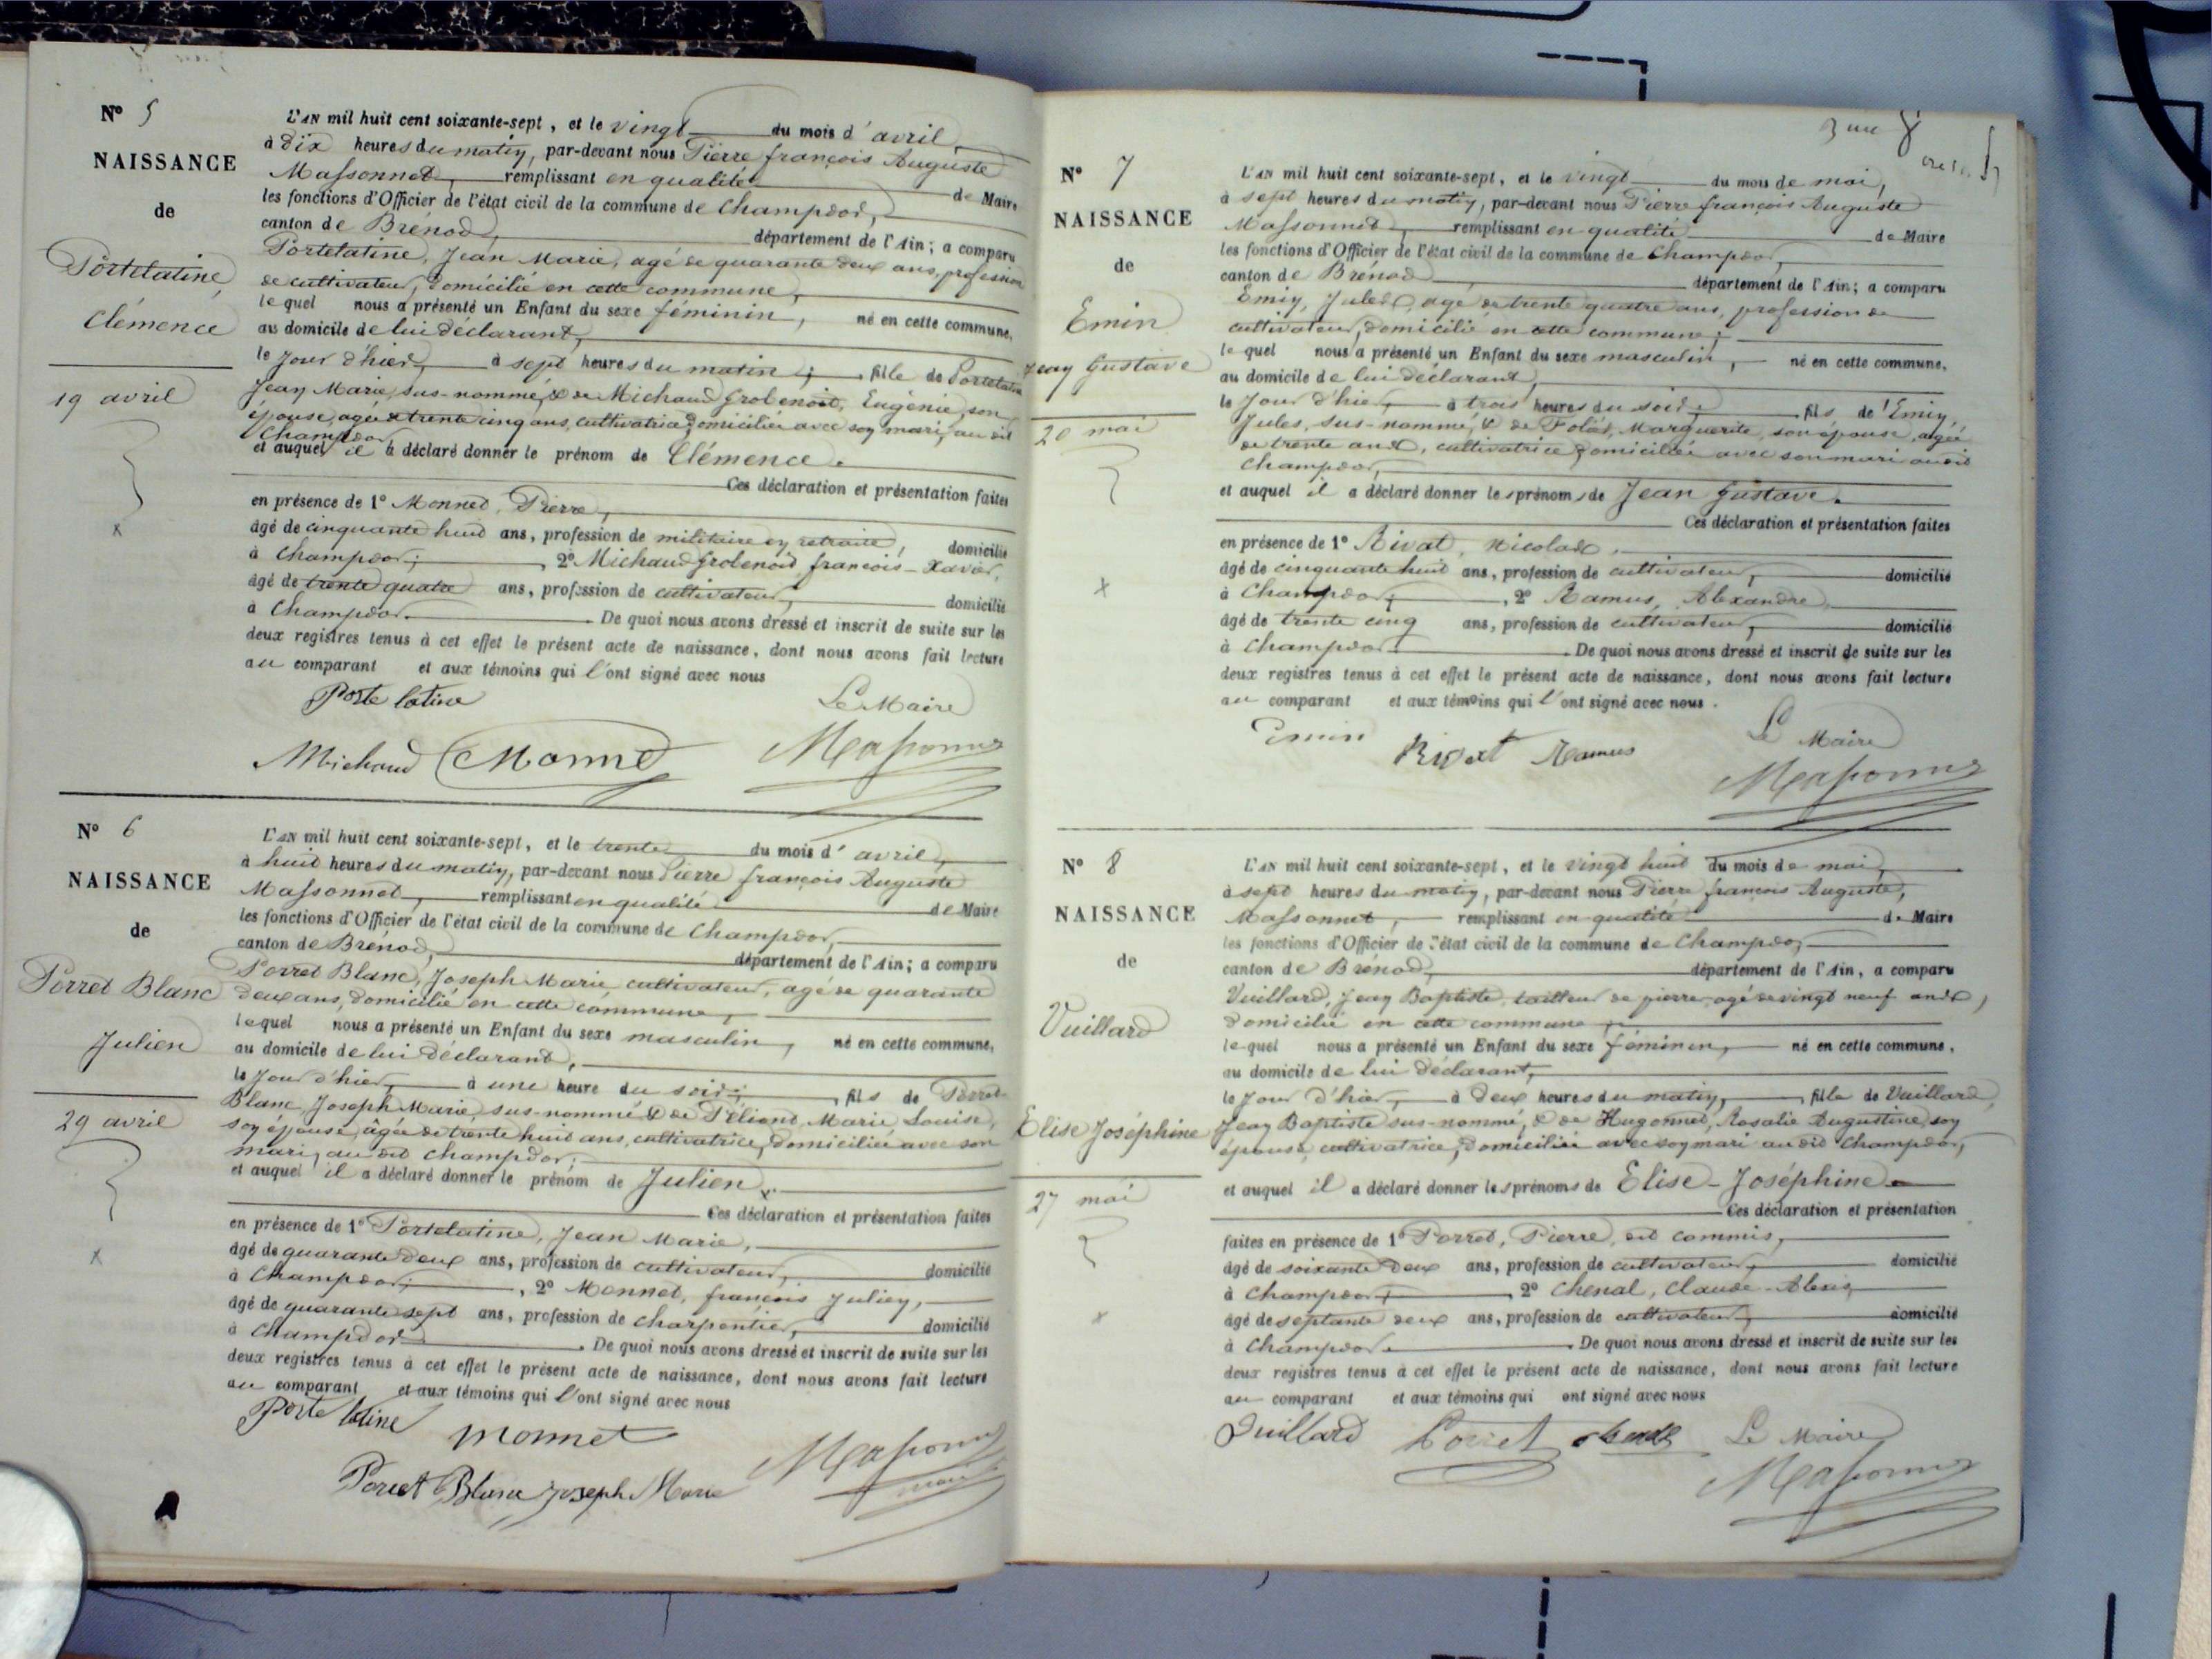 N° 5
NAISSANCE
de
Portelatine
Clémence
19 avril
L'AN mil huit cent soixante-sept, et le vingt du mois d'avril,
à dix heures du matin, par-devant nous Pierre françois Auguste
Massonnet, remplissant en qualité de Maire
les fonctions d'Officier de l'état civil de la commune de Champdor,
canton de Brénod, département de l'Ain; a comparu
Portelatine, Jean Marie, agé de quarante deux ans, profession
de cultivateur, domicilié en cette commune,
lequel nous a présenté un Enfant du sexe féminin, né en cette commune,
au domicile de lui déclarant,
le Jour d'hier, à sept heures du matin; fille de Portelatine
Jean Marie, sus-nommé, & de Michaud Grobenoit, Eugénie, son
épouse, agée de trente cinq ans, cultivatrice, domiciliée avec son mari, au dit
Champdor
et auquel il a déclaré donner le prénom de Clémence.
Ces déclaration et présentation faites
en présence de 1° Monnet, Pierre,
âgé de cinquante huit ans, profession de militaire en retraite, domicilié
à Champdor; 2° Michaud Grobenoit, françois-Xavier,
âgé de trente quatre ans, profession de cultivateur, domicilié
à Champdor. De quoi nous avons dressé et inscrit de suite sur les
deux registres tenus à cet effet le présent acte de naissance, dont nous avons fait lecture
au comparant et aux témoins qui l'ont signé avec nous
Porte latine Le Maire
Michaud Monnet Massonnet
N° 6
NAISSANCE
de
Porret Blanc
Julien
29 avril
L'AN mil huit cent soixante-sept, et le trente du mois d'avril,
à huit heures du matin, par-devant nous Pierre françois Auguste
Massonnet, remplissant en qualité de Maire
les fonctions d'Officier de l'état civil de la commune de Champdor,
canton de Brénod, département de l'Ain; a comparu
Porret Blanc, Joseph Marie, cultivateur, agé de quarante
deux ans, domicilié en cette commune,
lequel nous a présenté un Enfant du sexe masculin, né en cette commune,
au domicile de lui déclarant,
le Jour d'hier, à une heure du soir; fils de Porret-
Blanc, Joseph Marie, sus-nommé & de Marie Louise,
son épouse, âgée de trente huit ans, cultivatrice, domiciliée avec son
mari, au dit Champdor;
et auquel il a déclaré donner le prénom de Julien.
Ces déclaration et présentation faites
en présence de 1° Portelatine, Jean Marie,
âgé de quarante deux ans, profession de cultivateur, domicilié
à Champdor; 2° Monnet, françois Julien,
âgé de quarante sept ans, profession de charpentier, domicilié
à Champdor. De quoi nous avons dressé et inscrit de suite sur les
deux registres tenus à cet effet le présent acte de naissance, dont nous avons fait lecture
au comparant et aux témoins qui l'ont signé avec nous
Porte latine Monnet Massonnet
Porret Blanc Joseph Marie
N° 7
NAISSANCE
de
Emin
Jean Gustave
20 mai
L'AN mil huit cent soixante-sept, et le vingt du mois de mai,
à sept heures du matin, par-devant nous Pierre françois Auguste
Massonnet, remplissant en qualité de Maire
les fonctions d'Officier de l'état civil de la commune de Champdor,
canton de Brénod, département de l'Ain; a comparu
Emin, Jules, agé de trente quatre ans, profession de
cultivateur, domicilié en cette commune;
lequel nous a présenté un Enfant du sexe masculin, né en cette commune,
au domicile de lui déclarant,
le Jour d'hier, à trois heures du soir; fils de Emin,
Jules, sus-nommé, & de Marguerite, son épouse, agée
de trente ans, cultivatrice, domiciliée avec son mari au dit
Champdor,
et auquel il a déclaré donner les prénoms de Jean Gustave.
Ces déclaration et présentation faites
en présence de 1° Rivat, Nicolas,
âgé de cinquante huit ans, profession de cultivateur, domicilié
à Champdor; 2° Ramus, Alexandre,
âgé de trente cinq ans, profession de cultivateur, domicilié
à Champdor. De quoi nous avons dressé et inscrit de suite sur les
deux registres tenus à cet effet le présent acte de naissance, dont nous avons fait lecture
au comparant et aux témoins qui l'ont signé avec nous.
Emin Rivat Ramus Le Maire
Massonnet
N° 8
NAISSANCE
de
Vuillard
Elise Joséphine
27 mai
L'AN mil huit cent soixante-sept, et le vingt huit du mois de mai,
à sept heures du matin, par-devant nous Pierre françois Auguste,
Massonnet, remplissant en qualité de Maire
les fonctions d'Officier de l'état civil de la commune de Champdor,
canton de Brénod, département de l'Ain, a comparu
Vuillard, Jean Baptiste, tailleur de pierre, agé de vingt neuf ans,
domicilié en cette commune;
lequel nous a présenté un Enfant du sexe féminin, né en cette commune,
au domicile de lui déclarant,
le Jour d'hier, à deux heures du matin, fille de Vuillard,
Jean Baptiste sus-nommé, & de Hugonnet, Rosalie Augustine, son
épouse, cultivatrice, domiciliée avec son mari au dit Champdor,
et auquel il a déclaré donner les prénoms de Elise-Joséphine.
Ces déclaration et présentation
faites en présence de 1° Porret, Pierre, dit commis,
âgé de soixante deux ans, profession de cultivateur, domicilié
à Champdor; 2° Chenal, Claude-Alexis,
âgé de septante deux ans, profession de cultivateur, domicilié
à Champdor. De quoi nous avons dressé et inscrit de suite sur les
deux registres tenus à cet effet le présent acte de naissance, dont nous avons fait lecture
au comparant et aux témoins qui ont signé avec nous
Vuillard Porret Le Maire
Massonnet